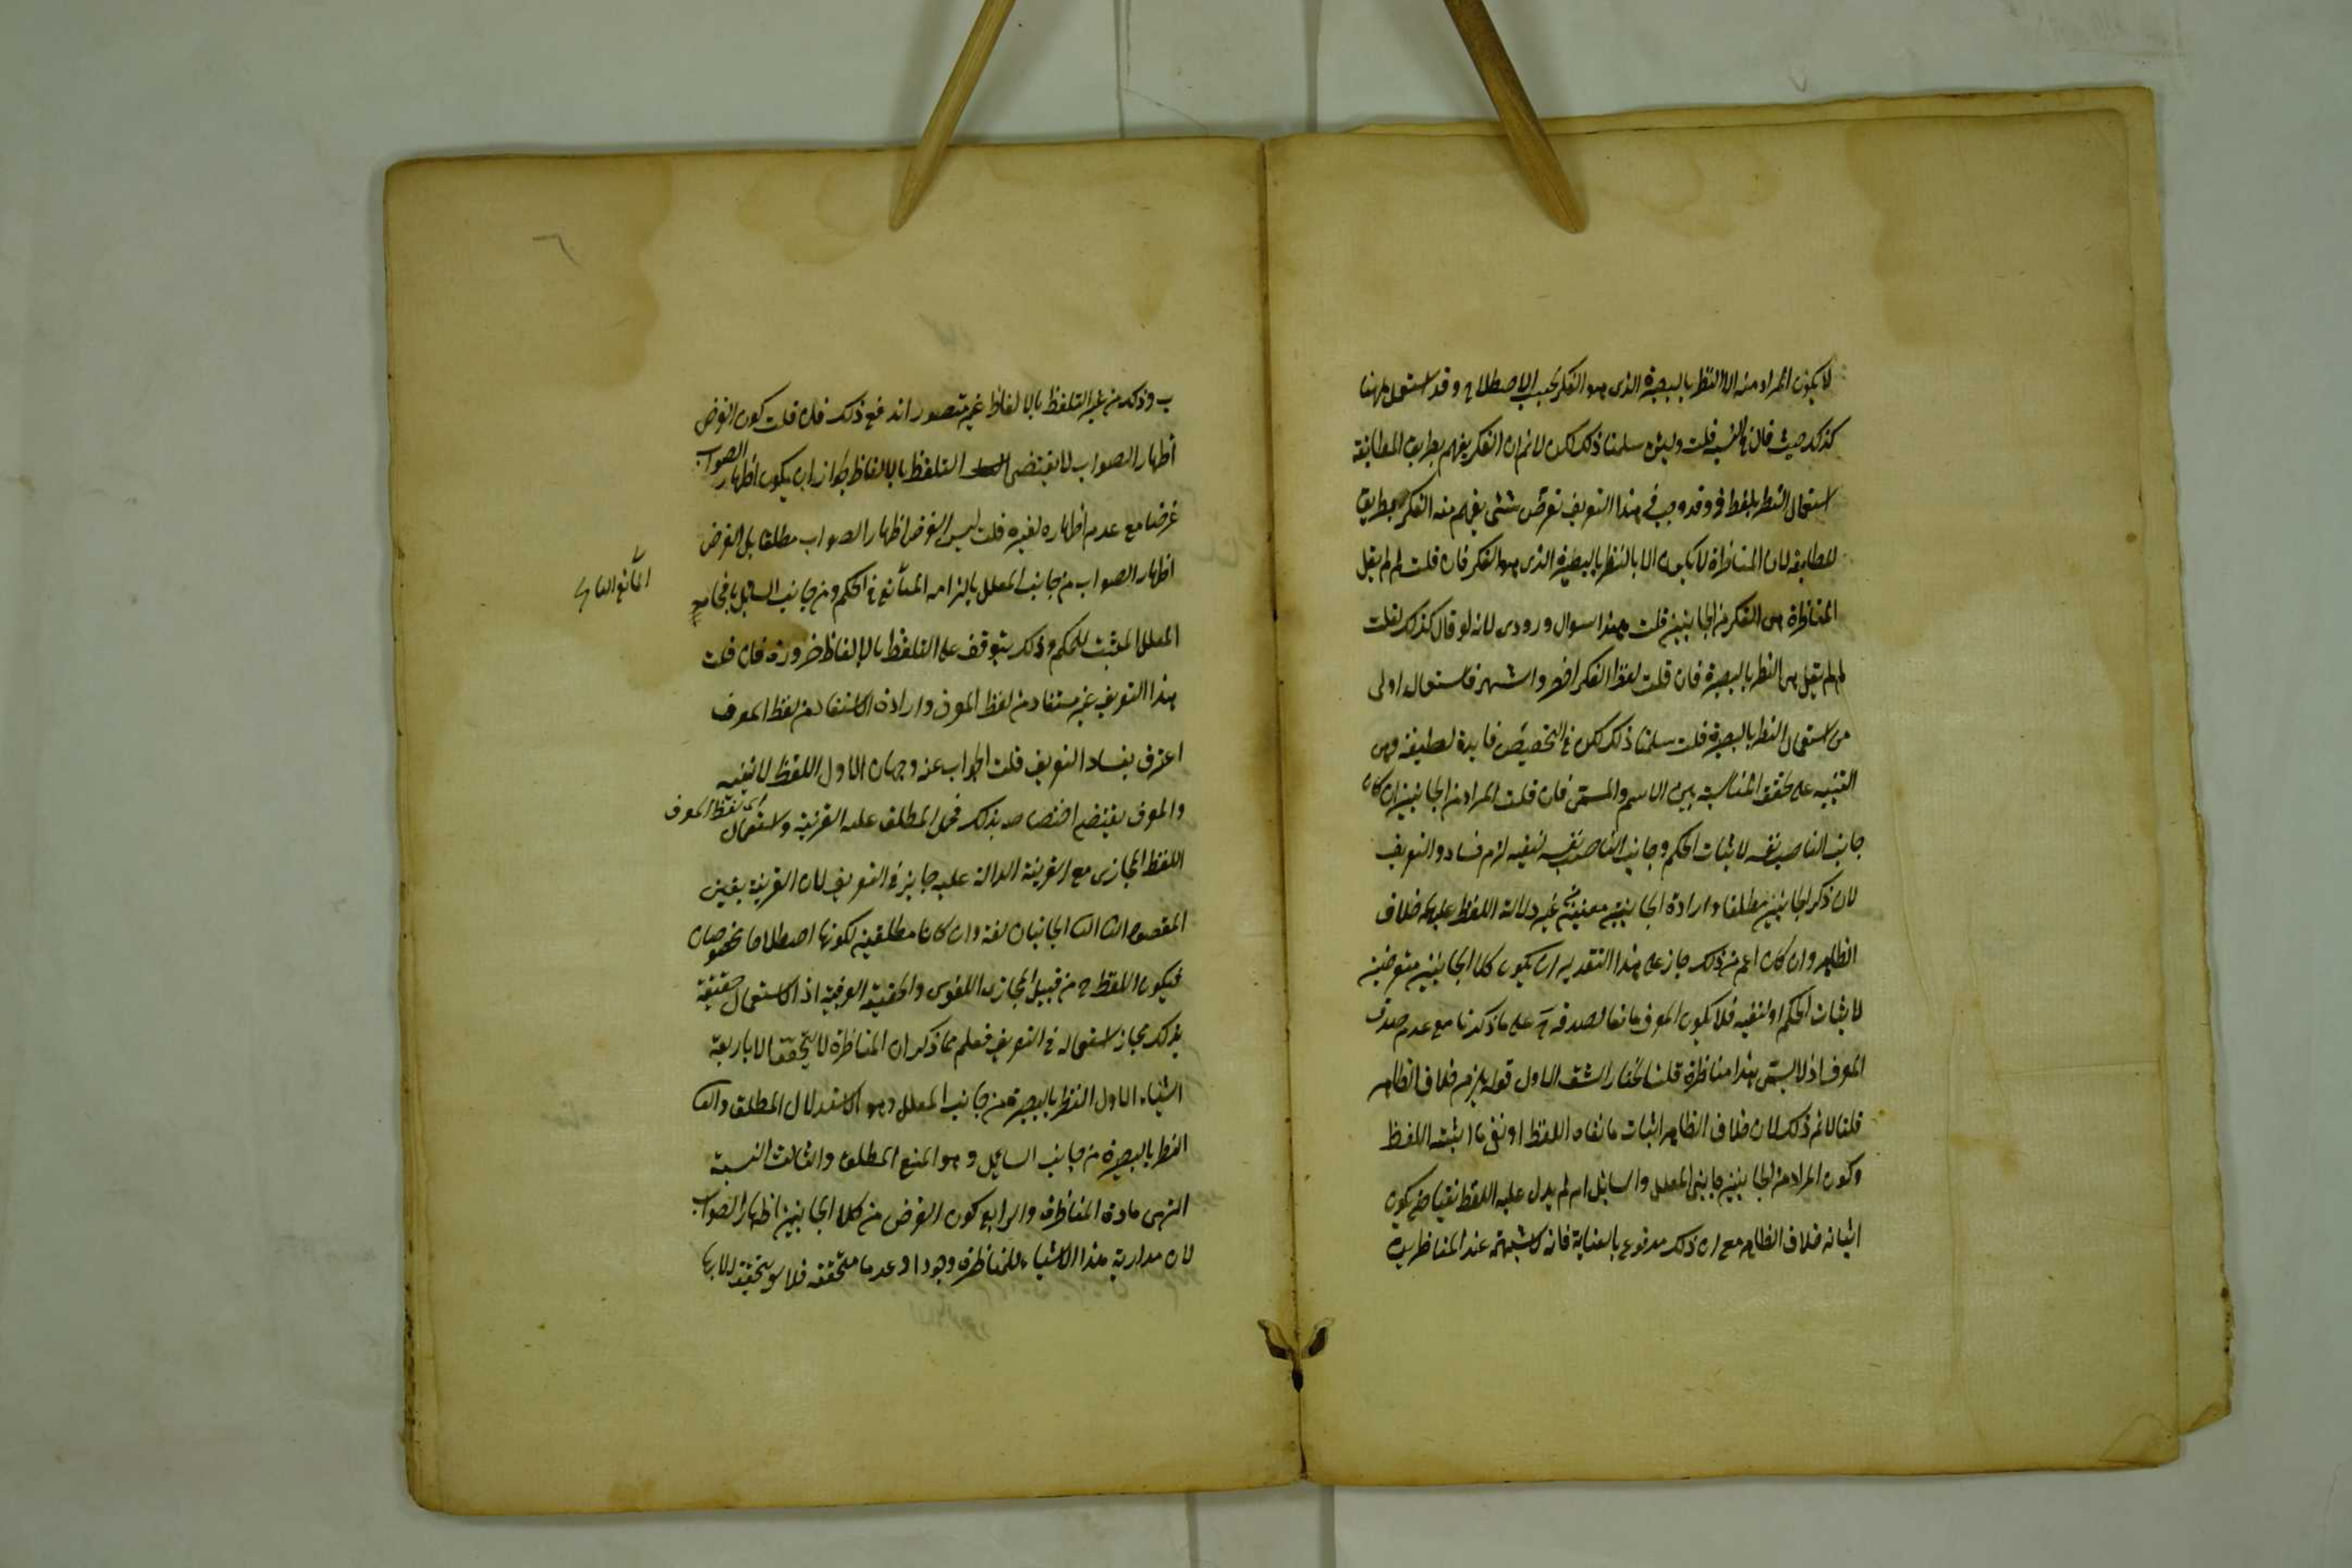 لا يكون المراد منه الا النظر بالبصيرة الذى هو الفكر بحسب الاصطلاح وقد استعمل ههنا
كذلك حيث قال فى النسبة قلت ولئن سلمنا ذلك لكن لانم ان الفكر يفهم بطريق المطابقة
استعمال النظر بلفظ فى وقد وجب فى هذا التعريف تعرض شئ يفهم منه الفكر بطريق
المطابقة لان المناظرة لا يكون الا بالنظر بالبصيرة الذى هو الفكر فان قلت لم لم يقل
المناظرة هى الفكر من الجانبين قلت هذا سوال ورودى لانه لو قال كذلك لقلت
لم لم يقل هى النظر بالبصيرة فان قلت لفظ الفكر اخصر واشهر فاستعماله اولى
من استعمال النظر بالبصيرة قلت سلمنا ذلك لكن فى التخصيص فايدة لطيفة وهى
التنبيه على تحقق المناسبة بين الاسم والمسمى فان قلت المراد من الجانبين ان كان
جانب الناصب نفسه لاثبات الحكم وجانب الناصب نفسه لنفيه لزم فساد التعريف
لان ذكر الجانبين مطلقا وارادة الجانبين معينين غير دلالة اللفظ عليهما خلاف
الظاهر وان كان اعم من ذلك جاز على هذا التقدير ان يكون كلا الجانبين متعرضين
لاثبات الحكم او لنفيه فلا يكون المعرف مانعا لصدقه ح على ما ذكرنا مع عدم صدق
المعرف اذ لا يسمى هذا مناظرة قلنا نختار الشق الاول قوله يلزم خلاف الظاهر
قلنا لانم ذلك لان خلاف الظاهر اثبات ما نفاه اللفظ او نفى ما اثبته اللفظ
وكون المراد من الجانبين جانبى المعلل والسائل امر لم يدل عليه اللفظ نفيا حتى يكون
اثباته خلاف الظاهر مع ان ذلك مدفوع بالعناية فانه كالشبهة عند المناظرين
ب وذلك من غير التلفظ بالالفاظ غير متصور اندفع ذلك فان قلت كون الغرض
اظهار الصواب لا يقتضى التلفظ بالالفاظ لجواز ان يكون اظهار الصواب
غرضا مع عدم اظهاره لغيره قلت ليس الغرض اظهار الصواب مطلقا بل الغرض
اظهار الصواب من جانب المعلل بالزامه المانع فى الحكم ومن جانب السائل بافحامه
المعلل المثبت للحكم وذلك يتوقف على التلفظ بالالفاظ ضرورة فان قلت
هذا التعريف غير مستفاد من لفظ المعرف وارادة المستفاد من لفظ المعرف
اعترف بفساد التعريف قلت الجواب عنه وجهان الاول اللفظ لا ينفيه
والمعرف يقتضى اختصاصه بذلك فحمل المطلق عليه القرينة واستعمال
اللفظ المجازى مع القرينة الدالة عليه جايز فى التعريف لان القرينة يعين
المقصود الثانى الجانبان لغة وان كانا مطلقين لكونهما اصطلاحا مخصوصان
فيكون اللفظ ح من قبيل المجازى اللغوى والحقيقة العرفية اذ الاستعمال حقيقة
بذلك مجاز استعماله فى التعريف فعلم مما ذكر ان المناظرة لا يتحقق الا باربعة
اشياء الاول النظر بالبصيرة من جانب المعلل وهو الاستدلال المطلق والثانى
النظر بالبصيرة من جانب السائل وهو المنع المطلق والثالث النسبة
التى هى مادة المناظرة والرابع كون الغرض من كلا الجانبين اظهار الصواب
لان مدارية هذا الاشياء للمناظرة وجودا وعدما متحققة فلا يتحقق الا بها